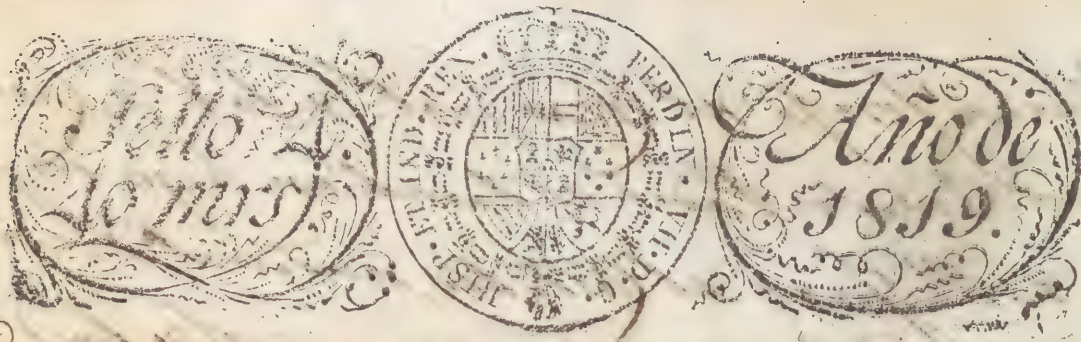 Sello 4.
40 mrs
FERDIN · VII · D · G · HISP · ET IND · REX ·
Año de
1819.